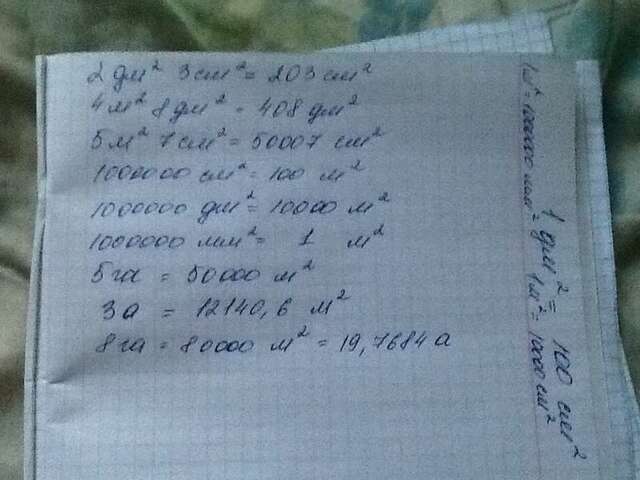 2 дм² 3 см² = 203 см²
4 м² 8 дм² = 408 дм²
5 м² 7 см² = 50007 см²
1000000 см² = 100 м²
1000000 дм² = 10000 м²
1000000 мм² = 1 м²
5 га = 50000 м²
3 а = 12140,6 м²
8 га = 80000 м² = 19,7684 а
1 м² = 1000000 мм²
1 дм² = 100 см²
1 м² = 10000 см²